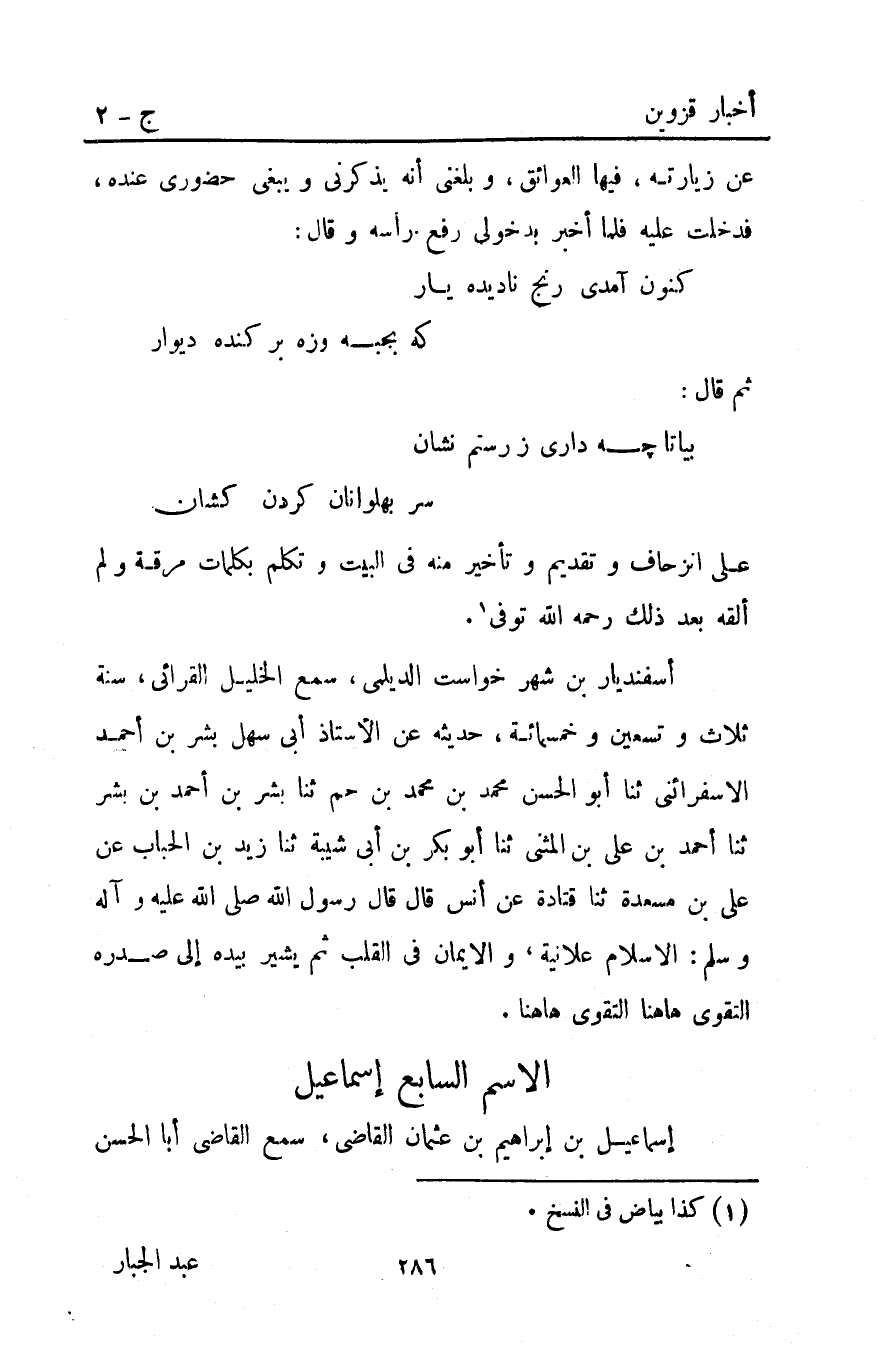 أخبار قزوين ج - ٢
عن زيارته ، فيها العوائق ، و بلغنى أنه يذكرنى و يبغى حضورى عنده ،
فدخلت عليه فلما أخبر بدخولى رفع رأسه و قال :
كنون آمدى رنج ناديده يار
كه بجبه وزه بر كنده ديوار
ثم قال :
بياتا چه دارى ز رستم نشان
سر بهلوانان كردن كشان
على انزحاف و تقديم و تأخير منه فى البيت و تكلم بكلمات مرقة و لم
ألقه بعد ذلك رحمه الله توفى١ .
أسفنديار بن شهر خواست الديلمى ، سمع الخليل القرائى ، سنة
ثلاث و تسعين و خمسمائة ، حديثه عن الآستاذ أبى سهل بشر بن أحمد
الاسفرائنى ثنا أبو الحسن محمد بن محمد بن حم ثنا بشر بن أحمد بن بشر
ثنا أحمد بن على بن المثنى ثنا أبو بكر بن أبى شيبة ثنا زيد بن الحباب عن
على بن مسعدة ثنا قتادة عن أنس قال قال رسول الله صلى الله عليه و آله
و سلم : الاسلام علانية ، و الايمان فى القلب ثم يشير بيده إلى صدره
التقوى هاهنا التقوى هاهنا .
الاسم السابع إسماعيل
إسماعيل بن إبراهيم بن عثمان القاضى ، سمع القاضى أبا الحسن
(١) كذا بياض فى النسخ .
٢٨٦ عبد الجبار